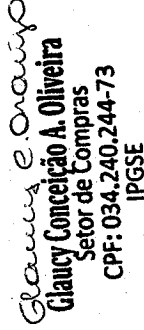 Glaucy C. Oraújo
Glaucy Conceição A. Oliveira
Setor de Compras
CPF: 034.240.244-73
IPGSE